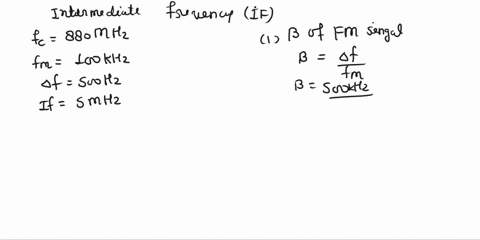 Intermediate frequency (IF)
fc = 880 MHz
fm = 100kHz
Δf = 500Hz
If = 5 MHz
(1) B of FM singal
B = Δf
fm
B = 500kHz